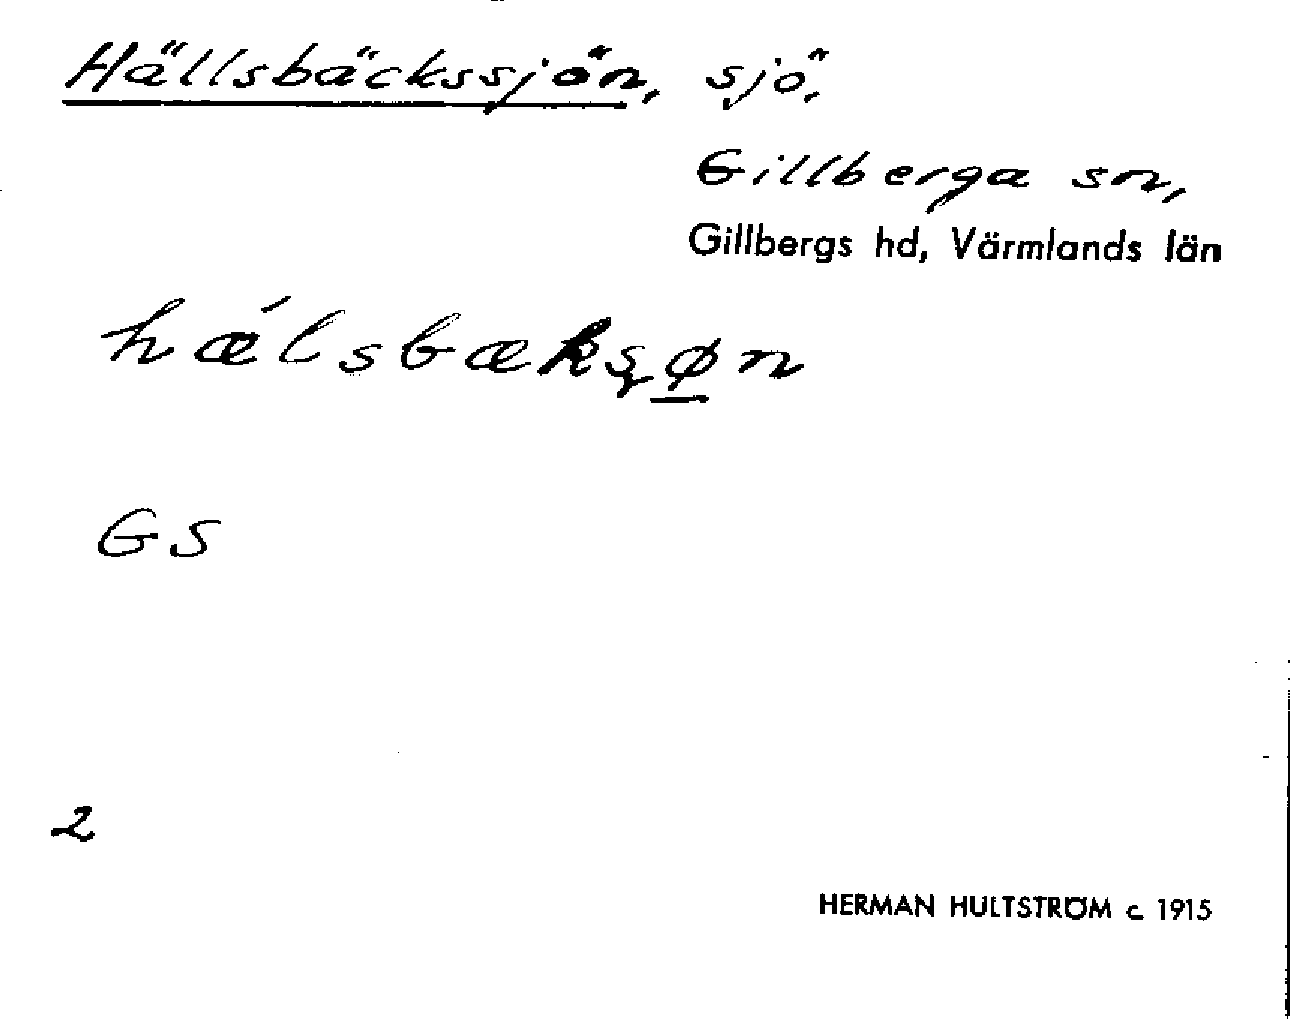 Hällsbäckssjön, sjö,
Gillberga sn,
Gillbergs hd, Värmlands län
hǽlsbækʂø̱n
GS
2
HERMAN HULTSTRÖM c. 1915